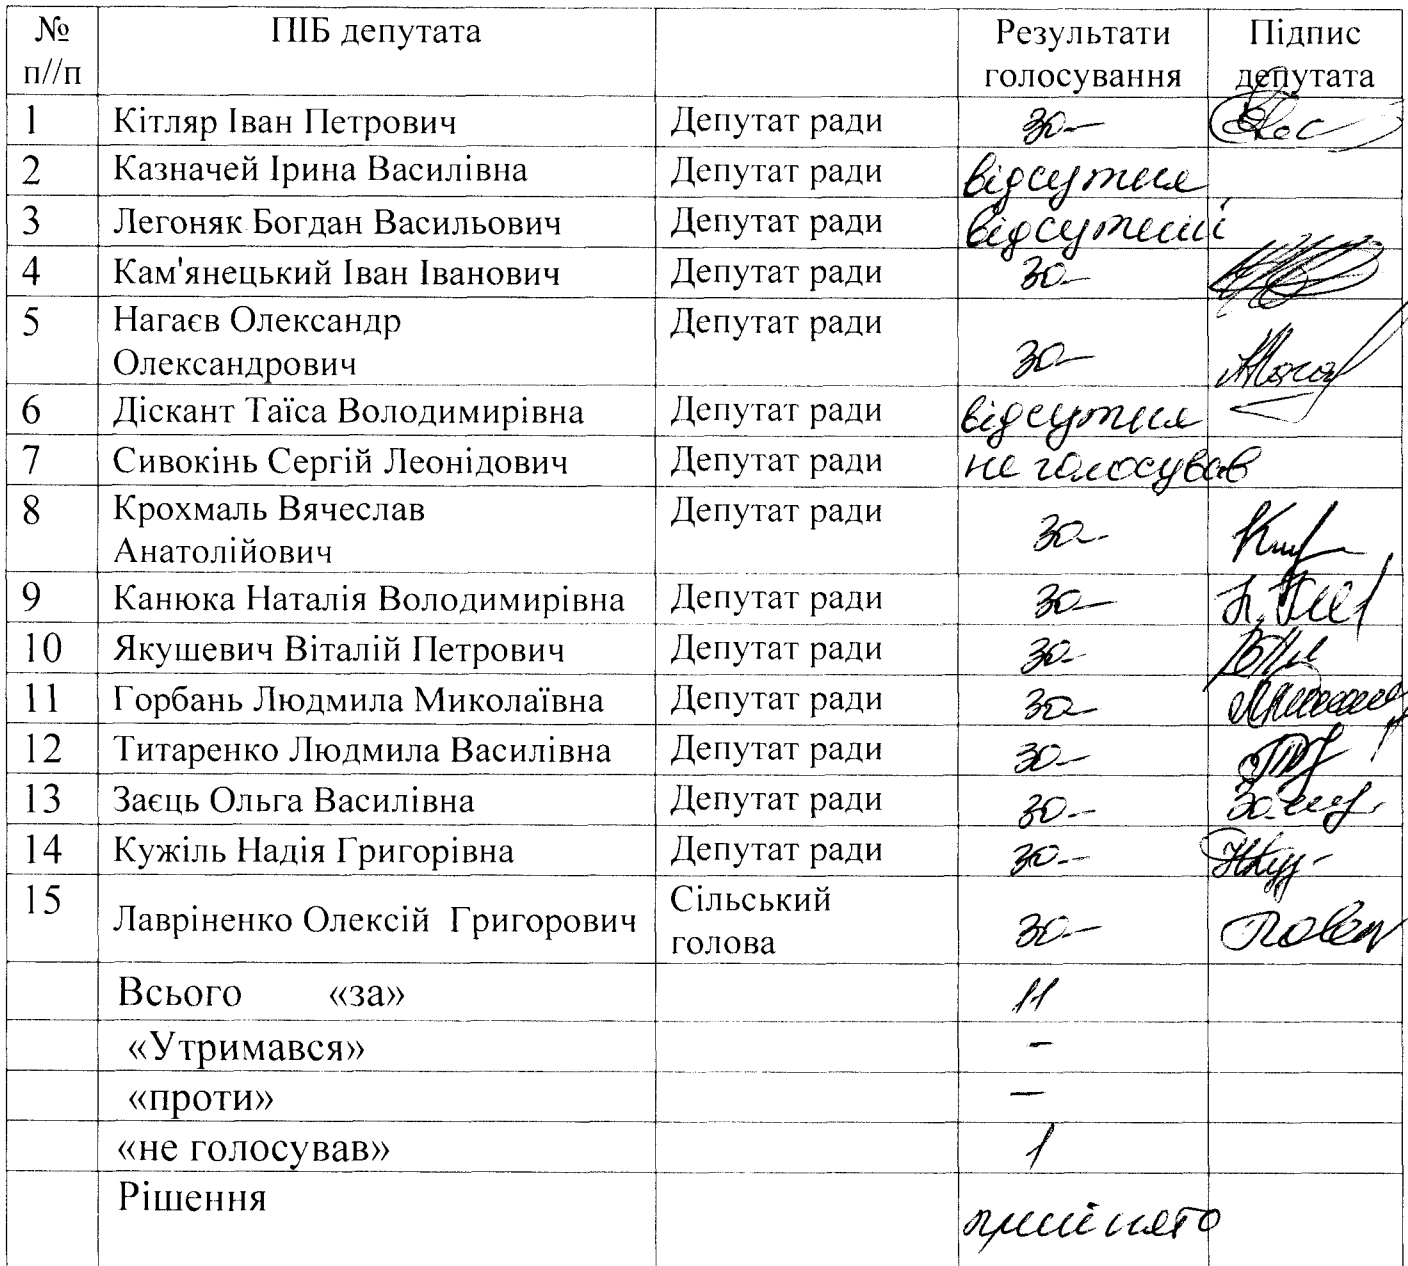 № ПІБ депутата Результати Підпис
п//п голосування депутата
1 Кітляр Іван Петрович Депутат ради за
2 Казначей Ірина Василівна Депутат ради відсутня
3 Легоняк Богдан Васильович Депутат ради відсутній
4 Кам'янецький Іван Іванович Депутат ради за
5 Нагаєв Олександр Депутат ради
Олександрович за
6 Діскант Таїса Володимирівна Депутат ради відсутня
7 Сивокінь Сергій Леонідович Депутат ради не голосував
8 Крохмаль Вячеслав Депутат ради
Анатолійович за
9 Канюка Наталія Володимирівна Депутат ради за
10 Якушевич Віталій Петрович Депутат ради за
11 Горбань Людмила Миколаївна Депутат ради за
12 Титаренко Людмила Василівна Депутат ради за
13 Заєць Ольга Василівна Депутат ради за
14 Кужіль Надія Григорівна Депутат ради за
15 Лавріненко Олексій Григорович Сільський
голова за
Всього «за» 11
«Утримався» -
«проти» —
«не голосував» 1
Рішення прийнято